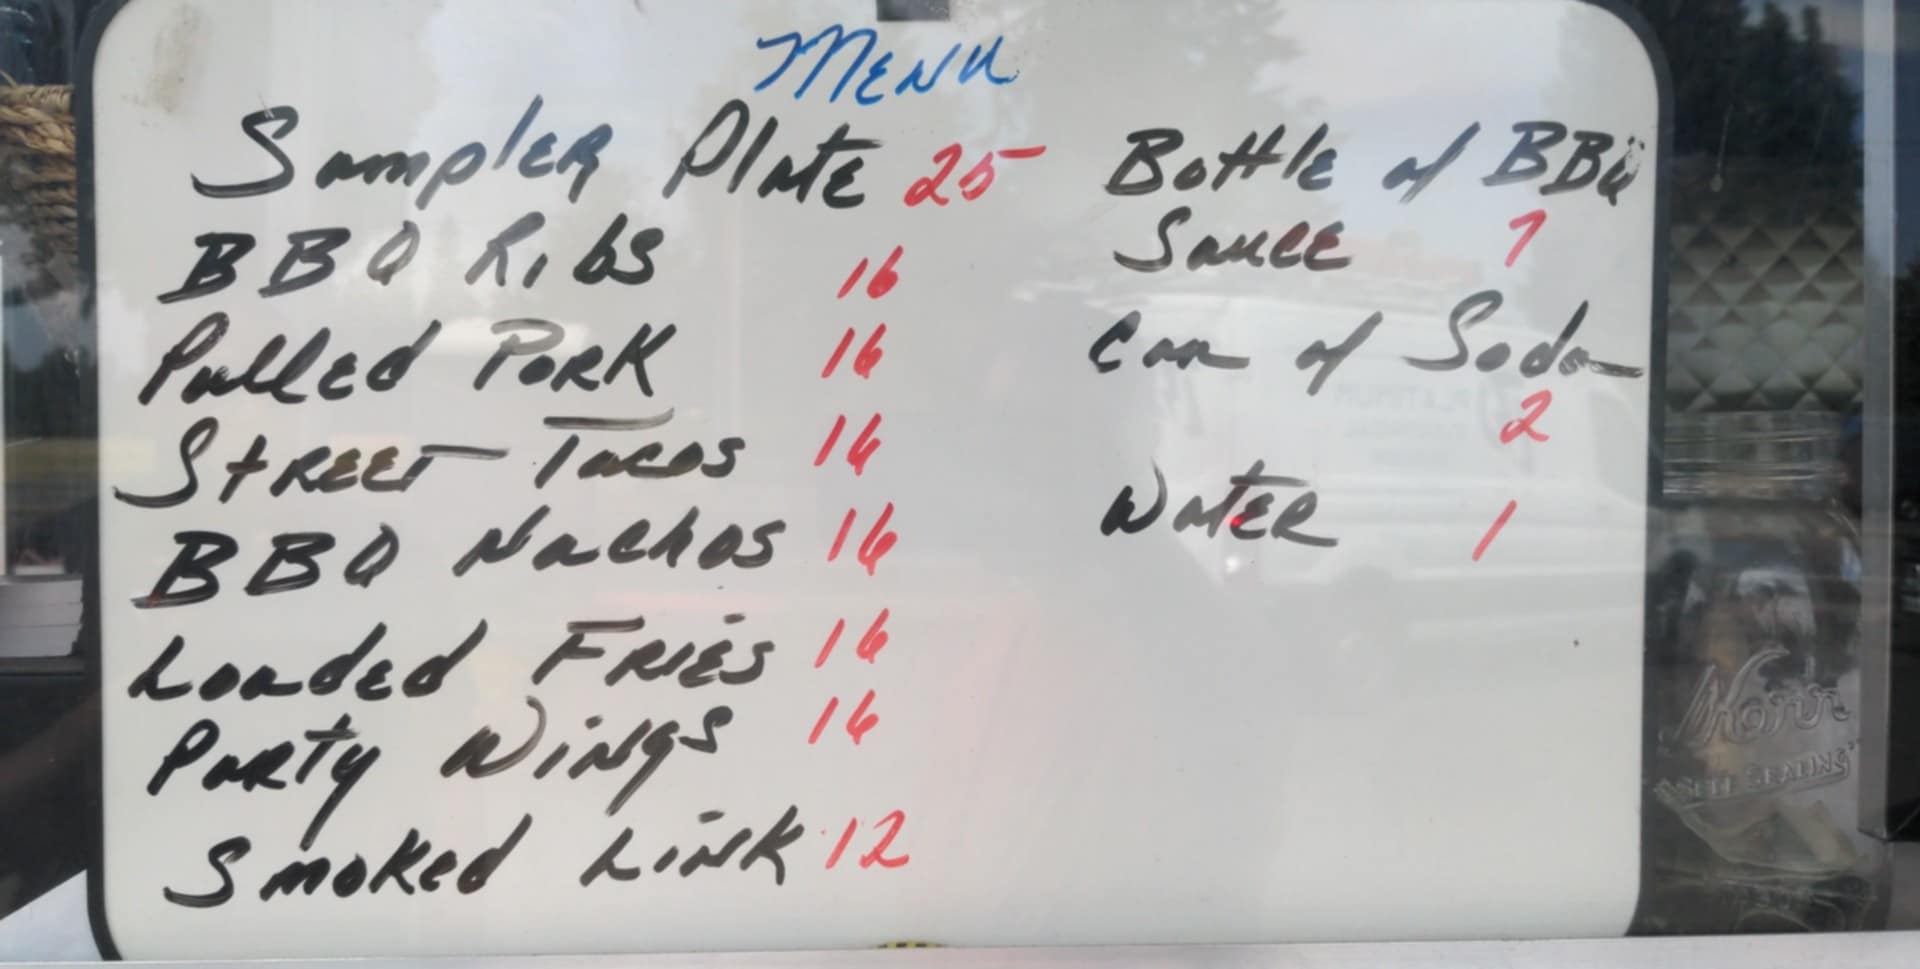 MENU
SAmplER PlATE 25
BBQ Ribs 16
Pulled PORK 16
STREET TAcos 16
BBQ NAchos 16
LOADED FRIES 16
PARTY WiNgS 16
SmoKed LiNK 12
Bottle of BBQ
SAUCE 7
CAn of SodA
2
WATER 1
Kerr
SELF SEALING